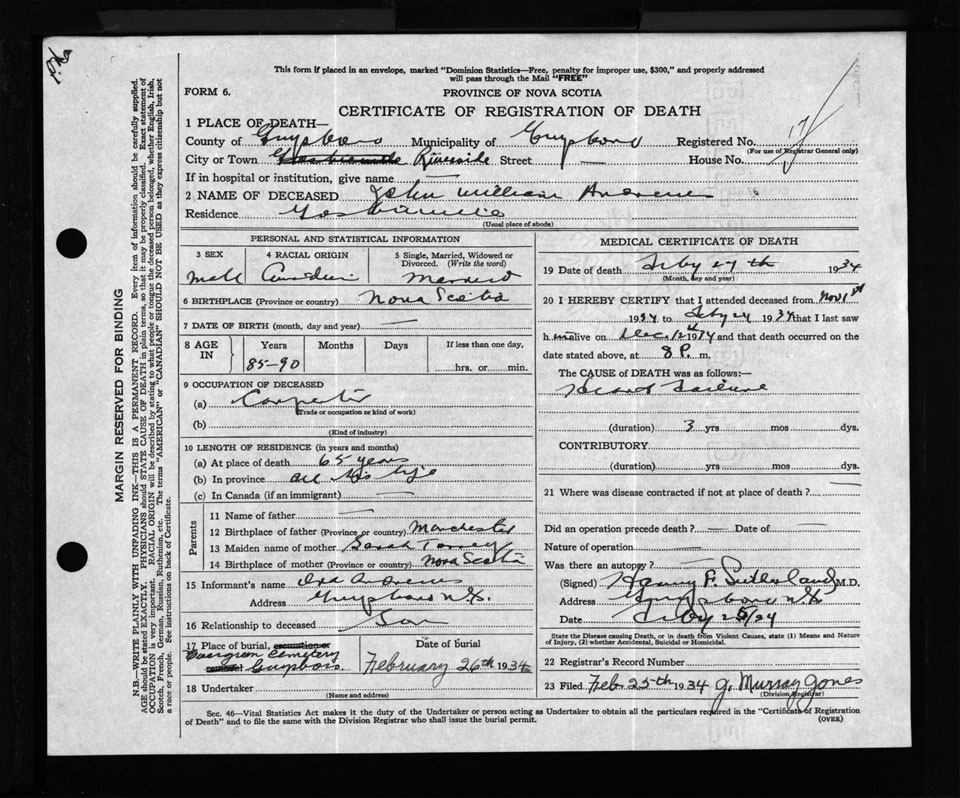 This form if placed in an envelope, marked "Dominion Statistics—Free, penalty for improper use, $300," and properly addressed
will pass through the Mail "FREE"
FORM 6.
PROVINCE OF NOVA SCOTIA
CERTIFICATE OF REGISTRATION OF DEATH
1 PLACE OF DEATH—
County of Guysboro Municipality of Guysboro Registered No. 17
(For use of Registrar General only)
City or Town Riverside Street — House No.
If in hospital or institution, give name —
2 NAME OF DECEASED John William Andrews
Residence
(Usual place of abode)
PERSONAL AND STATISTICAL INFORMATION
3 SEX 4 RACIAL ORIGIN 5 Single, Married, Widowed or Divorced. (Write the word)
Married
6 BIRTHPLACE (Province or country) Nova Scotia
7 DATE OF BIRTH (month, day and year) —
8 AGE IN Years Months Days If less than one day,
85-90 hrs. or min.
9 OCCUPATION OF DECEASED
(a) Carpenter
(Trade or occupation or kind of work)
(b)
(Kind of industry)
10 LENGTH OF RESIDENCE (in years and months)
(a) At place of death 65 years
(b) In province all his life
(c) In Canada (if an immigrant) —
Parents
11 Name of father —
12 Birthplace of father (Province or country) Manchester
13 Maiden name of mother Sarah Torrey
14 Birthplace of mother (Province or country) Nova Scotia
15 Informant's name Andrews
Address Guysboro N.S.
16 Relationship to deceased Son
17 Place of burial, cremation or
Evergreen Cemetery
Guysboro.
Date of burial
February 26th 1934
18 Undertaker
(Name and address)
MEDICAL CERTIFICATE OF DEATH
19 Date of death Feby 24th 1934
(Month, day and year)
20 I HEREBY CERTIFY that I attended deceased from Nov 1st
to Feby 24 1934 that I last saw
h im alive on Dec. 12th and that death occurred on the
date stated above, at 8 P. m.
The CAUSE of DEATH was as follows:—
Heart Failure
(duration) 3 yrs mos dys.
CONTRIBUTORY
(duration) yrs mos dys.
21 Where was disease contracted if not at place of death? —
Did an operation precede death? — Date of —
Nature of operation —
Was there an autopsy —
(Signed) Harry P. Sutherland M.D.
Address Guysboro N.S.
Date Feby 25/34
State the Disease causing Death, or in death from Violent Causes, state (1) Means and Nature
of Injury, (2) whether Accidental, Suicidal or Homicidal.
22 Registrar's Record Number
23 Filed Feb. 25th 1934 G. Murray Jones
(Division Registrar)
Sec. 46—Vital Statistics Act makes it the duty of the Undertaker or person acting as Undertaker to obtain all the particulars required in the "Certificate of Registration
of Death" and to file the same with the Division Registrar who shall issue the burial permit.
(OVER)
MARGIN RESERVED FOR BINDING
N.B.—WRITE PLAINLY WITH UNFADING INK—THIS IS A PERMANENT RECORD. Every item of information should be carefully supplied.
AGE should be stated EXACTLY. PHYSICIANS should STATE CAUSE OF DEATH in plain terms, so that it may be properly classified. Exact statement of
OCCUPATION is very important. RACIAL ORIGIN will be described by stating to what people or tongue the deceased person belonged, whether English, Irish,
Scotch, French, German, Russian, Ruthenian, etc. The terms "AMERICAN" or "CANADIAN" SHOULD NOT BE USED as they express citizenship but not
a race or people. See instructions on back of Certificate.